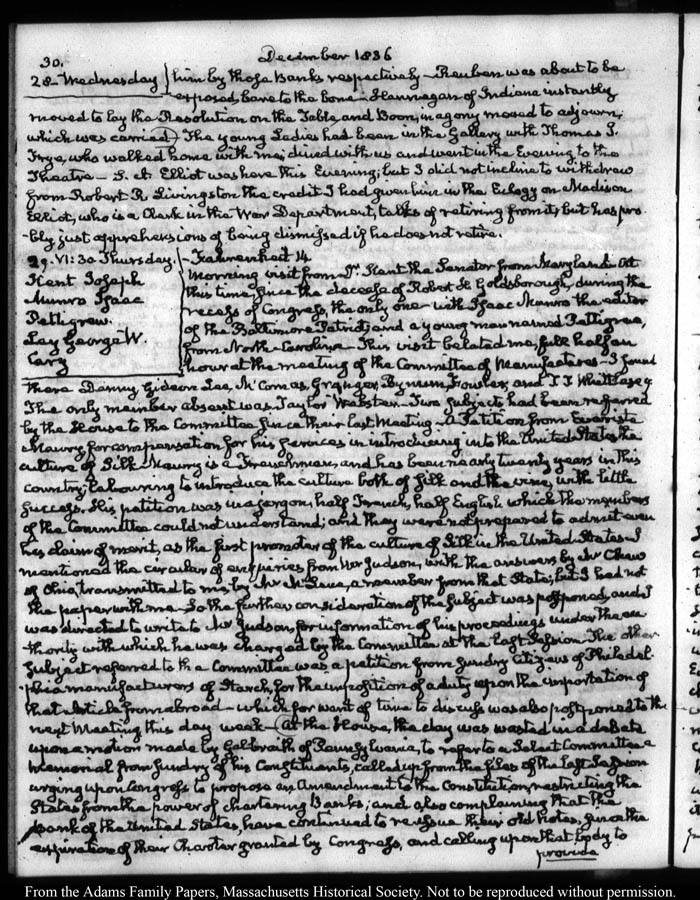 30.
December 1836
28. Wednesday
him by those Banks respectively—Reuben was about to be
exposed, bare to the bone—Hannegan of Indiana instantly
moved to lay the Resolution on the Table and Boon, in agony moved to adjourn;
which was carried) The young Ladies had been in the Gallery with Thomas
Frye, who walked home with me; dined with us and went in the Evening to the
Theatre— Elliot was here this Evening; but I did not incline to withdraw
from Robert R Livingston the credit I had given him in the Eulogy on Madison
Elliot, who is a Clerk in the War Department, talks of retiring from it, but has pro
-bly just apprehensions of being dismissed if he does not retire.
29. VI:30. Thursday.
Kent Joseph
Munro Isaac
Pettigrew.
Lay George W.
Cary
Fahrenheit 14
Morning visit from Dr. Kent the Senator from Maryland. At
this time, since the decease of Robert H. Goldsborough, during the
recess of Congress, the only one—with Isaac Munro the editor
of the Baltimore Patriot, and a young man named Pettigrew,
from North-Carolina—This visit belated me, full half an
hour at the meeting of the Committee of Manufactures—I found
there Denny, Gideon Lee, McComas, Granger, Bynum, Fowler, and T T Whittlesey
The only member absent was Taylor Webster—Two subjects had been referred
by the House to the Committee since their last Meeting—A Petition from Evariste
Maury, for compensation for his services in introducing into the United States the
culture of Silk. Maury is a Frenchman, and has been nearly twenty years in this
country, labouring to introduce the culture both of Silk and the vine, with little
success. His petition was in a jargon, half French, half English which the members
of the Committee could not understand; and they were not prepared to admit even
his claim of merit, as the first promoter of the culture of Silk in the United States—I
mentioned the circular of enquiries from Mr Judson, with the answers by Mr
of Ohio, transmitted to me by Mr McLene, a member from that State; but I had not
the paper with me—So the further consideration of the subject was postponed, and I
was directed to write to Mr Judson, for information of his proceedings under the au
thority with which he was charged by the Committee at the last Session. The other
subject referred to the Committee was a petition from sundry citizens of Philadel-
phia manufacturers of Starch, for the imposition of a duty upon the importation of
that article from abroad—which for want of time to discuss was also postponed to the
next Meeting this day week—(At the House, the day was wasted in a debate
upon a motion made by Galbraith of Pennsylvania, to refer to a Select Committee a
Memorial from sundry of his Constituents, called up from the files of the last Session
urging upon Congress to propose an Amendment to the Constitution, restricting the
States from the power of chartering Banks; and also complaining that the
Bank of the United States, have continued to reissue their old Notes, since the
expiration of their Charter granted by Congress, and calling upon that body to
provide
From the Adams Family Papers, Massachusetts Historical Society. Not to be reproduced without permission.